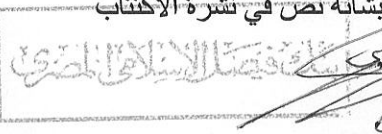 بشأنه نص في نشرة الاكتتاب
بنك فيصل الإسلامي المصري